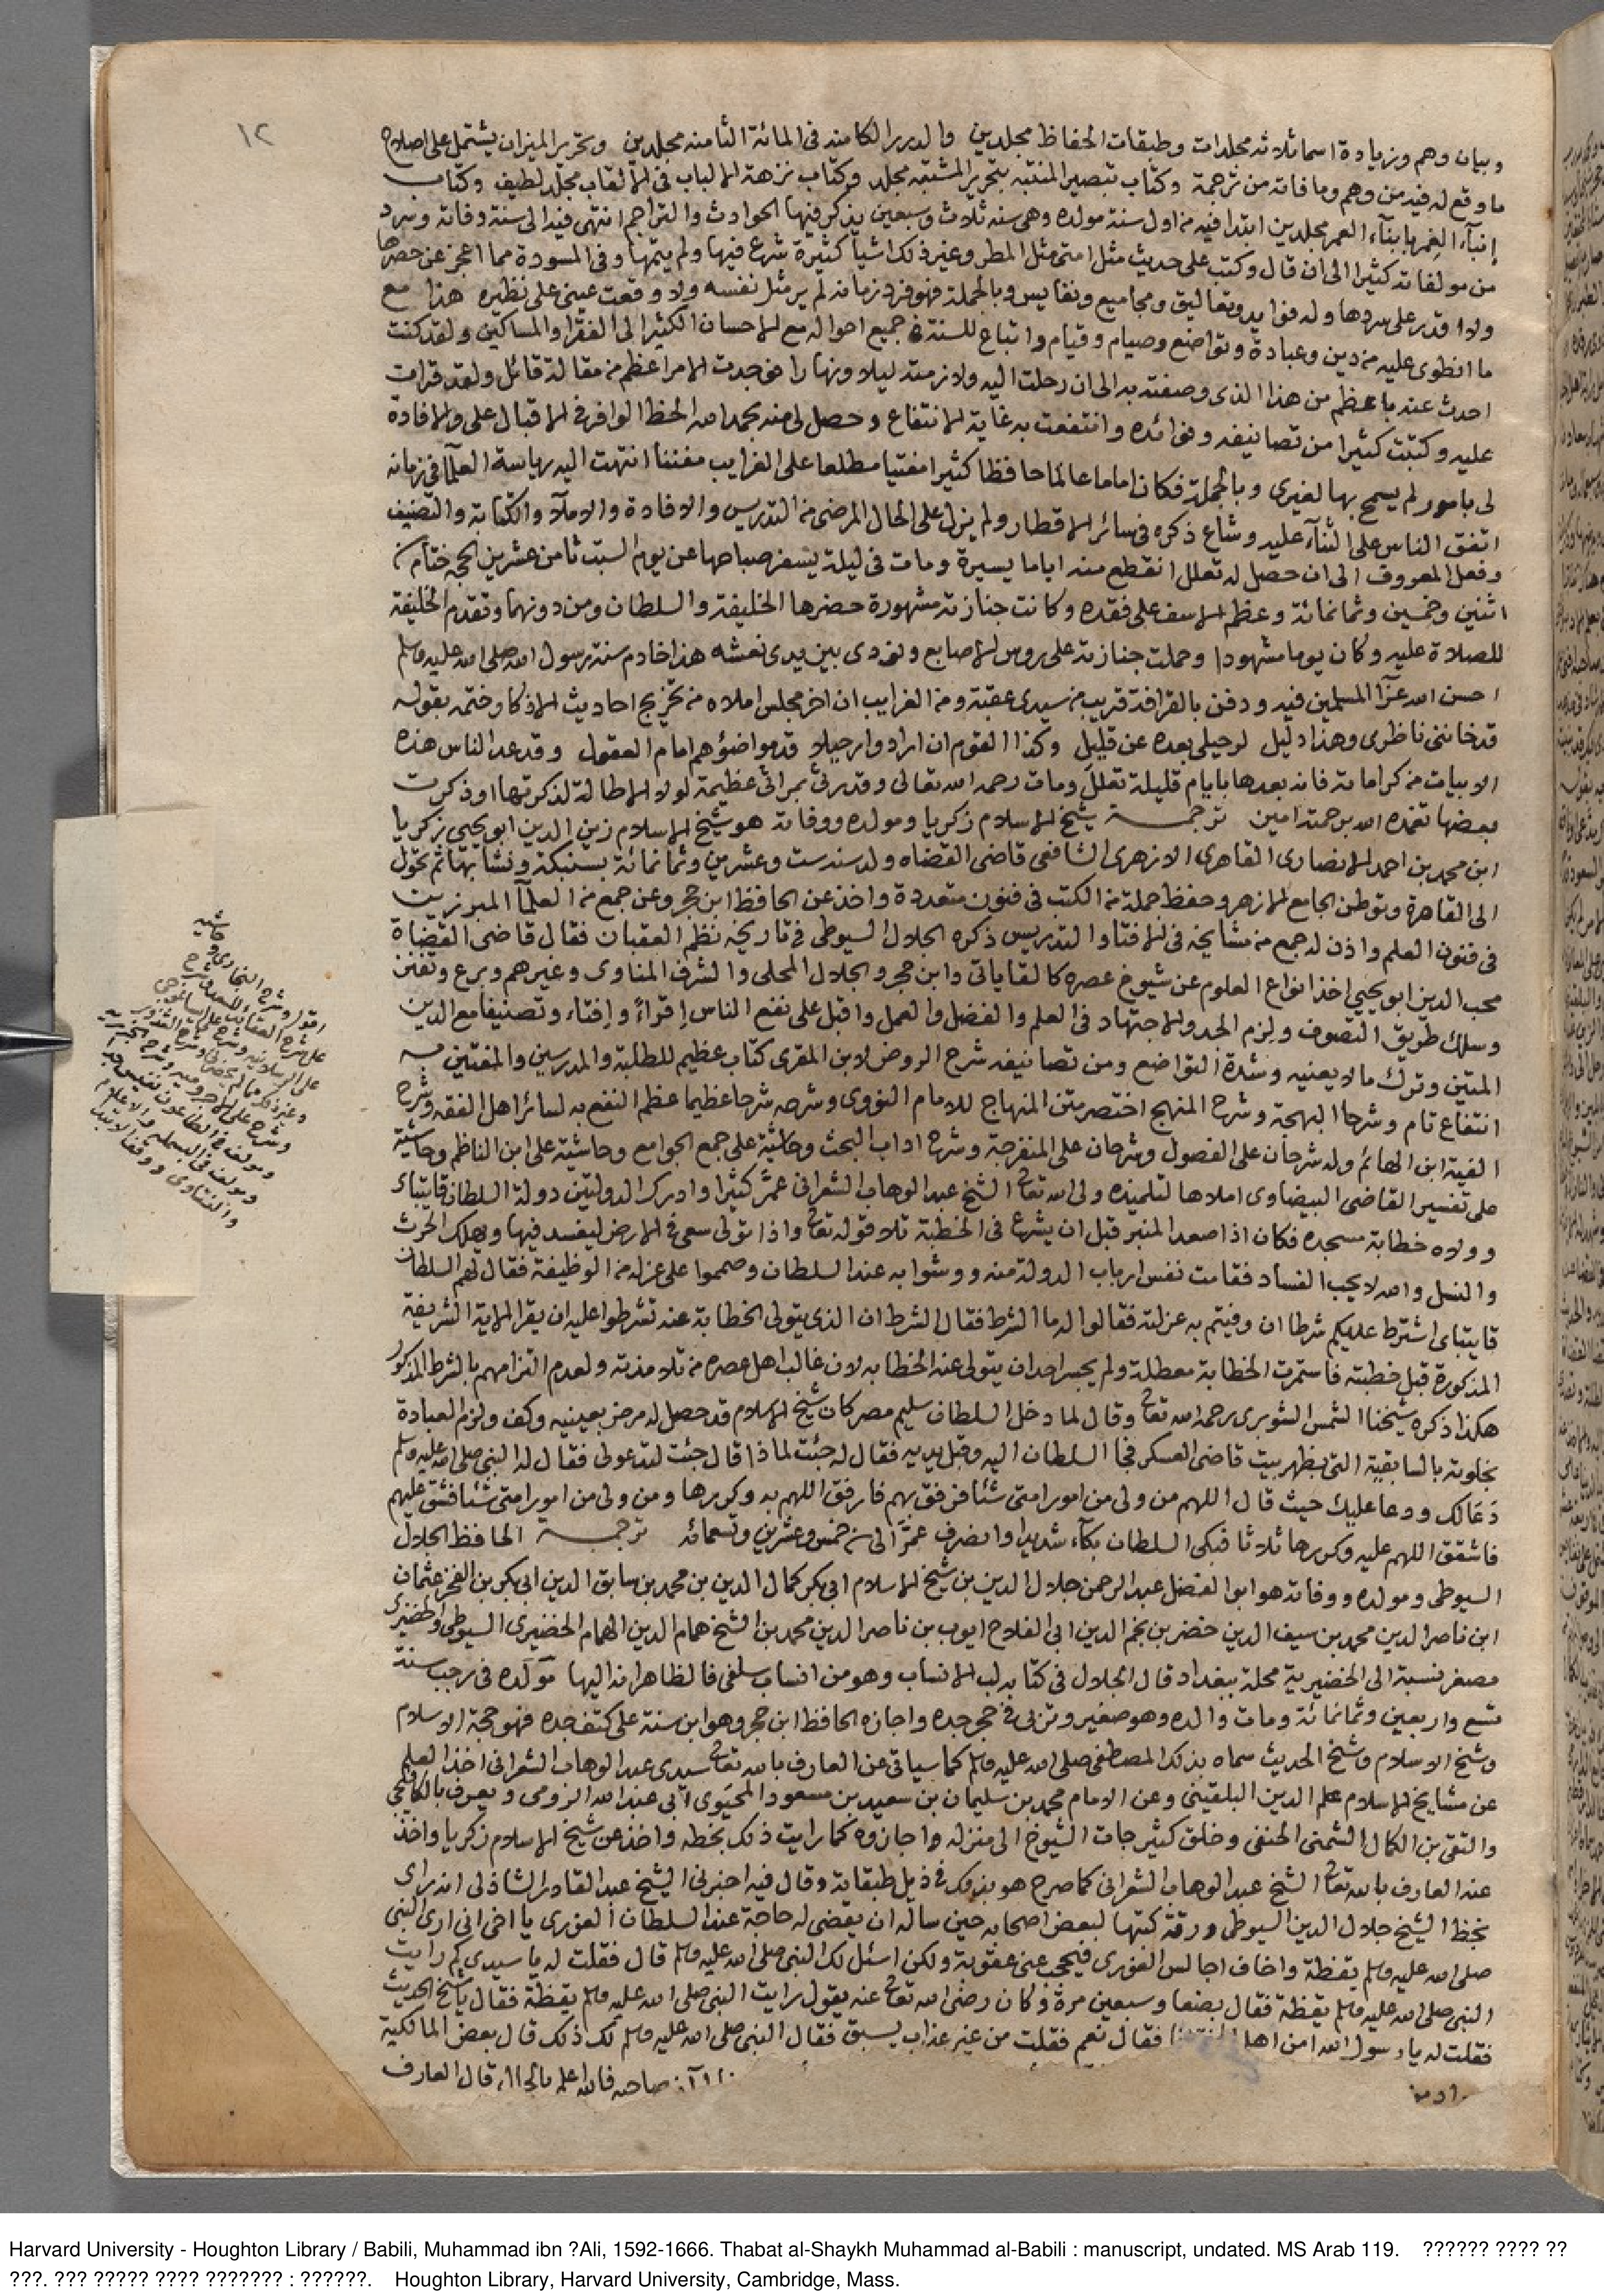 ١٢
وبيان وهم وزيادة اسما ثلاثه مجلدات وطبقات الحفاظ مجلدين والدرر الكامنه فى المائة الثامنه مجلدين وتحرير الميزان يشتمل على اصلاح
ما وقع له فيه من وهم وما فاته من ترجمة وكتاب تبصير المنتبه بتحرير المشتبه مجلد وكتاب نزهة الالباب فى الالقاب مجلد لطيف وكتاب
إنبآء الغمر بابناء العمر مجلدين ابتدا فيه من اول سنة مولده وهى سنه ثلاث وسبعين يذكر فيها الحوادث والتراجم انتهى فيه الى سنة وفاته وسرد
من مولفاته كثيرا الى ان قال وكتب على حديث مثل امتى مثل المطر وغير ذلك اشيا كثيرة شرع فيها ولم يتمها وفى المسودة مما اعجز عن حصرها
ولا اقدر على سردها وله فوايد وتعاليق ومجاميع ونفايس وبالجملة فهو فرد زمانه لم ير مثل نفسه ولا وقعت عينى على نظيره هذا مع
ما انطوى عليه من دين وعبادة وتواضع وصيام وقيام واتباع للسنة فى جميع احواله مع الاحسان الكثير الى الفقرا والمساكين ولقد كنت
احدث عنه باعظم من هذا الذى وصفته به الى ان رحلت اليه ولازمته ليلا ونهارا فوجدت الامر اعظم من مقالة قائل ولقد قرات
عليه وكتبت كثيرا من تصانيفه وفوائده وانتفعت به غاية الانتفاع وحصل لى منه بحمد الله الحظ الوافر فى الاقبال على والافادة
لى بامور لم يسمح بها لغيرى وبالجملة فكان اماما عالما حافظا كثيرا مفتيا مطلعا على الغرايب مفننا انتهت اليه رياسة العلمآ فى زمانه
اتفق الناس على الثنآء عليه وشاع ذكره فى سائر الاقطار ولم يزل على الحال المرضى من التدريس والافادة والاملآ والكتابة والتصنيف
وفعل المعروف الى ان حصل له تعلل انقطع منه اياما يسيرة ومات فى ليلة يسفر صباحها عن يوم السبت ثامن عشرين الحجه ختام
اثنين وخمسين وثمانمائة وعظم الاسف على فقده وكانت جنازته مشهورة حضرها الخليفة والسلطان ومن دونهما وتقدم الخليفة
للصلاة عليه وكان يوما مشهودا وحملت جنازته على روس الاصابع ونودى بين يدى نعشه هذا خادم سنة رسول الله صلى الله عليه وسلم
احسن الله عزآ المسلمين فيه ودفن بالقرافة قريب من سيدى عقبة ومن الغرايب ان اخر مجلس املاه من تخريج احاديث الاذكار وختمه بقوله
قد خاننى ناظرى وهذا دليل لرحيلى بعده عن قليل وكذا القوم ان ارادوا رحيلا قدموا ضوؤهم امام العقول وقد عد الناس هذه
الابيات من كراماته فانه بعدها بايام قليلة تعلل ومات رحمه الله تعالى وقد رثى بمراثى عظيمة لولا الاطالة لذكرتها او ذكرت
بعضها تغمده الله برحمته امين ترجمة شيخ الاسلام زكريا ومولده ووفاته هو شيخ الاسلام زين الدين ابو يحيى زكريا
ابن محمد بن احمد الانصارى القاهرى الازهرى الشافعى قاضى القضاه ولد سنه ست وعشرين وثمانمائة بسنبكة ونشا بها ثم تحول
الى القاهرة وتوطن الجامع الازهر وحفظ جملة من الكتب فى فنون متعددة واخذ عن الحافظ ابن حجر وعن جمع من العلمآ المبرزين
فى فنون العلم واذن له جمع من مشايخه فى الافتا والتدريس ذكره الجلال السيوطى فى تاريخه نظم العقيان فقال قاضى القضاة
محب الدين ابو يحيى اخذ انواع العلوم عن شيوخ عصره كالقاياتى وابن حجر والجلال المحلى والشرف المناوى وغيرهم وبرع وتفنن
وسلك طريق التصوف ولزم الجد والاجتهاد فى العلم والفضل والعمل واقبل على نفع الناس إقراءً وإفتاء وتصنيفا مع الدين
المتين وترك ما لا يعنيه وشدة التواضع ومن تصانيفه شرح الروض لابن المقرى كتاب عظيم للطلبة والمدرسين والمفتين به
انتفاع تام وشرحا البهجة وشرح المنهج اختصر متن المنهاج للامام النووى وشرحه شرحا عظيما عظم النفع به لسائر اهل الفقه وشرح
الفية ابن الهائم وله شرحان على الفصول وشرحان على المنفرجة وشرح اداب البحث وحاشية على جمع الجوامع وحاشية على ابن الناظم وحاشية
على تفسير القاضى البيضاوى املاها لتلميذه ولى الله تعالى الشيخ عبد الوهاب الشعرانى عمَّر كثيرا وادرك الدولتين دولة السلطان قايتباى
وولاه خطابة مسجده فكان اذا صعد المنبر قبل ان يشرع فى الخطبة تلا قوله تعالى واذا تولى سعى فى الارض ليفسد فيها ويهلك الحرث
والنسل والله لا يحب الفساد فقامت نفس ارباب الدولة منه ووشوا به عند السلطان وصمموا على عزله من الوظيفة فقال لهم السلطان
قايتباى اشترط عليكم شرطا ان وفيتم به عزلته فقالوا له ما الشرط فقال الشرط ان الذى يتولى الخطابة عنه تشرطوا عليه ان يقرا الاية الشريفة
المذكورة قبل خطبته فاستمرت الخطابة معطلة ولم يجسر احد ان يتولى عنه الخطابه لان غالب اهل عصره من تلامذته ولعدم التزامهم بالشرط المذكور
هكذا ذكره شيخنا الشمس الشوبرى رحمه الله تعالى وقال لما دخل السلطان سليم مصر كان شيخ الاسلام قد حصل له مرض بعينيه وكف ولزم العبادة
بخلوته بالسابقية التى بظهر بيت قاضى العسكر فجا السلطان اليه وقبل يديه فقال له جئت لماذا قال جئت لتدعو لى فقال له النبى صلى الله عليه وسلم
دَعَا لك ودعا عليك حيث قال اللهم من ولى من امور امتى شئا فرفق بهم فارفق اللهم به وكررها ومن ولى من امور امتى شئا فشق عليهم
فاشقق اللهم عليه وكررها ثلاثا فبكى السلطان بكآء شديدا وانصرف عمَّرَ الى سنة خمس وعشرين وتسعمائه ترجمة الحافظ الجلال
السيوطى ومولده ووفاته هو ابو الفضل عبد الرحمن جلال الدين بن شيخ الاسلام ابى بكر كمال الدين بن محمد بن سابق الدين ابى بكر بن الفخر عثمان
ابن ناصر الدين محمد بن سيف الدين خضر بن نجم الدين ابى الفلاح ايوب بن ناصر الدين محمد بن الشيخ همام الدين الهمام الخضيرى السيوطى والخضيرى
مصغر نسبة الى الخضيرية محلة ببغداد قال الجلال فى كتابه لب الانساب وهو من انساب سلفى فالظاهر انه اليها مولده فى رجب سنة
تسع واربعين وثمانمائة ومات والده وهو صغير وتربى فى حجر جده واجازه الحافظ ابن حجر وهو ابن سنة على كتف جده فهو حجة الاسلام
وشيخ الاسلام وشيخ الحديث سماه بذلك المصطفى صلى الله عليه وسلم كما سياتى عن العارف بالله تعالى سيدى عبد الوهاب الشعرانى اخذ العلم
عن مشايخ الاسلام علم الدين البلقينى وعن الامام محمد بن سليمان بن سعيد بن مسعود المحيَوى ابى عبد الله الرومى ويعرف بالكافيجى
والتقى بن الكمال الشمنى الحنفى وخلق كثير جات الشيوخ الى منزله واجازوه كما رايت ذلك بخطه واخذ عن شيخ الاسلام زكريا واخذ
عنه العارف بالله تعالى الشيخ عبد الوهاب الشعرانى كما صرح هو بذلك فى ذيل طبقاته وقال فيه اخبرنى الشيخ عبد القادر الشاذلى انه راى
بخط الشيخ جلال الدين السيوطى ورقة كتبها لبعض اصحابه حين ساله ان يقضى له حاجة عند السلطان الغورى يا اخى انى ارى النبى
صلى الله عليه وسلم يقظة واخاف اجالس الغورى فيحجب عنى عقوبة ولكن اسئل لك النبى صلى الله عليه وسلم قال فقلت له يا سيدى كم رايت
النبى صلى الله عليه وسلم يقظة فقال بضعا وسبعين مرة وكان رضى الله تعالى عنه يقول رايت النبى صلى الله عليه وسلم يقظة فقال يا شيخ الحديث
فقلت له يا رسول الله امن اهل الجنة انا فقال نعم فقلت من غير عذاب يسبق فقال النبى صلى الله عليه وسلم لك ذلك قال بعض المالكية
صاحبه فالله اعلم بالحال قال العارف
حاشيه
اقول وشرح البخارى و
على شرح العقائد للسعد وشرح
على الرسالة وشرح على ايساغوجى
وغير ذلك مما لم يحضرنى وشرح الشذور
وشرح على الاجروميه وشرح الجزريه
ومولف فى الطاعون نفيس جدا
ومولف فى البسمله والاعلام
والفتاوى ووقف الابتدا
Harvard University - Houghton Library / Babili, Muhammad ibn ?Ali, 1592-1666. Thabat al-Shaykh Muhammad al-Babili : manuscript, undated. MS Arab 119. ?????? ???? ??
???. ??? ????? ???? ??????? : ??????. Houghton Library, Harvard University, Cambridge, Mass.